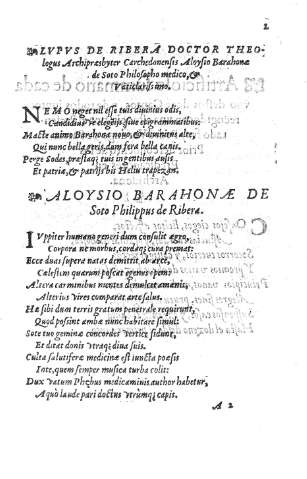 2
LVPVS DE RIBERA DOCTOR THEO-
logus Archipræsbyter Carchedonensis Aloysio Barahonæ
de Soto Philosopho medico, &
Vati clarissimo.
NEMO neget nil esse tuis diuinius odis,
elogijs, siue epigrammatibus:
Macte animo Barahona nouo, & diuinius alte,
Qui nunc bella geris, dum fera bella canis.
Perge Sodes, præstaq; tuis ingentibus ausis
Et patriæ, & patrijs bis Heliu trapezan.
ALOYSIO BARAHONÆ DE
Soto Philippus de Ribera.
IVppiter humano generi dum consulit agro,
Corpora ne morbus, cordaq; cura premat:
Ecce duas supera natas demittit ab arce,
Cælestum quarum posset egenus opem:
Altera carminibus mentes demulcet amænis,
Alterius vires comparat arte salus.
Hæ sibi dum terris gratum penetrale requirunt,
Quod possint ambæ nunc habitare simul:
Sote tuo geminæ concordes vertice sidunt,
Et ditat donis vtraq; diua suis.
Culta salutiferæ medicinæ est iuncta poesis
In te, quem semper musica turba colit:
Dux vatum Phœbus medicaminis author habetur,
A quo laude pari doctus vtrumq; capis.
A 2